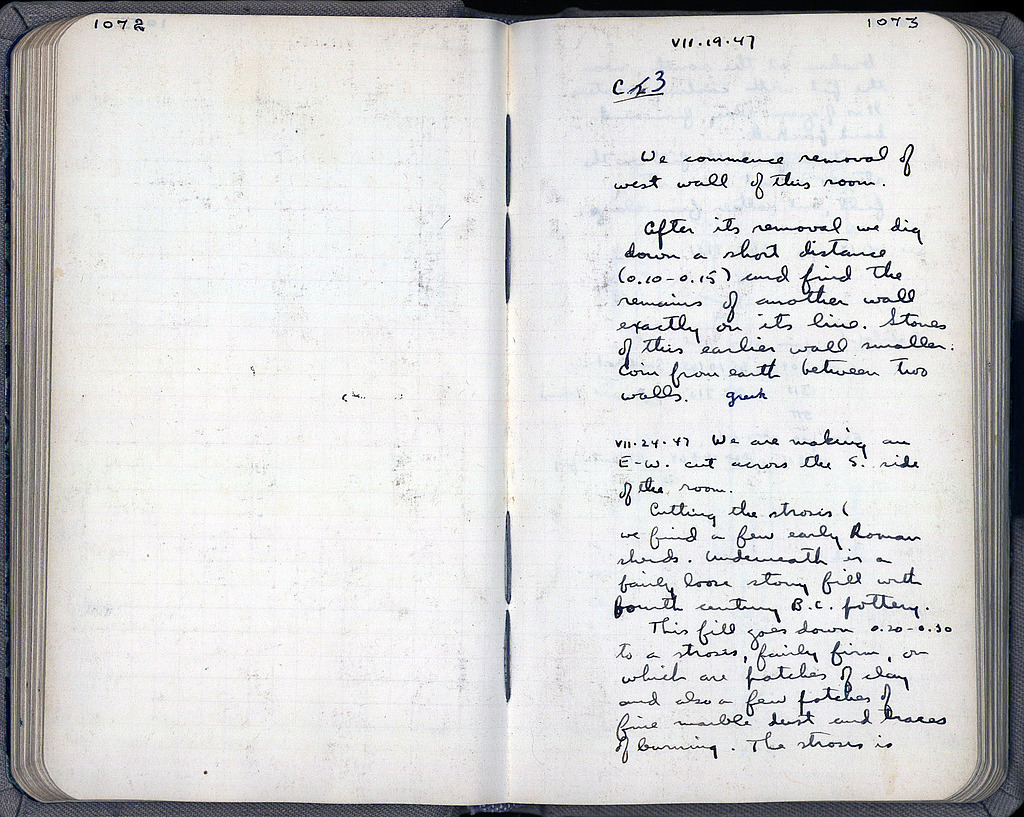 1072
1073
VII·19·47
C 3
We commence removal of
west wall of this room.
After its removal we dig
down a short distance
(0.10-0.15) and find the
remains of another wall
exactly on its line. Stones
of this earlier wall smaller.
Coin from earth between two
walls. greek
VII·24·47 We are making an
E-W. cut across the S. side
of the room.
Cutting the strosis (
we find a few early Roman
sherds. Underneath is a
fairly loose stony fill with
fourth century B.C. pottery.
This fill goes down 0.20-0.30
to a strosis, fairly firm, on
which are patches of clay
and also a few patches of
fine marble dust and traces
of burning. The strosis is